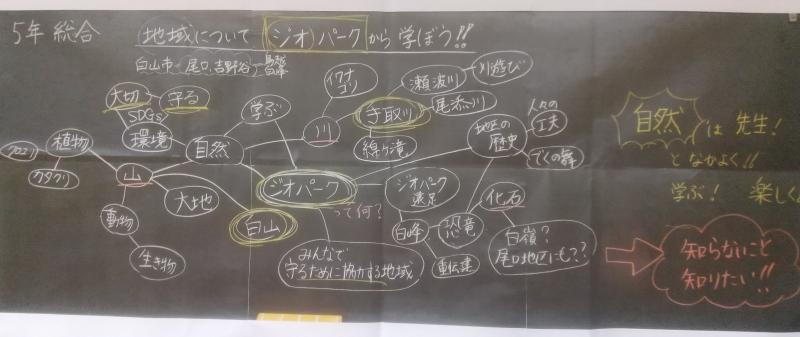 5年 総合
地域について ジオパークから学ぼう!!
白山市 - 尾口、吉野谷 - 鳥越 白峰
大切
守る
SDGs
環境
自然
学ぶ
植物
クロユリ
カタクリ
山
動物
生き物
大地
白山
ジオパーク
って何?
みんなで
守るために協力する地域
川
イワナ
ゴリ
手取川
瀬波川
川遊び
尾添川
綿ヶ滝
地区の
歴史
人々の
工夫
でくの舞
ジオパーク
遠足
白峰
恐竜
重伝建
化石
白嶺?
尾口地区にも??
自然は先生!
となかよく!!
学ぶ! 楽しく
知らないこと
知りたい!!